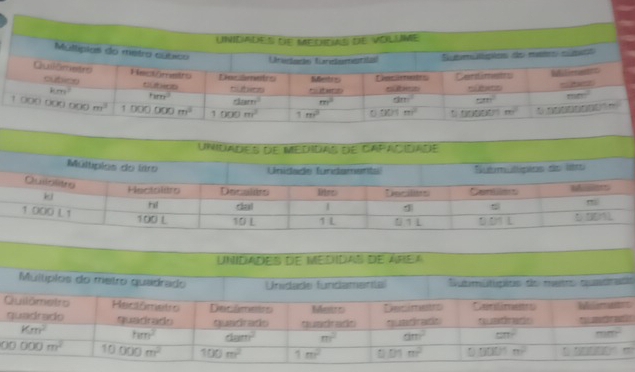 UNIDADES DE MEDIDAS DE VOLUME
Múltiplos do metro cúbico Unidade fundamental Submúltiplos do metro cúbico
Quilômetro cúbico Hectômetro cúbico Decâmetro cúbico Metro cúbico Decímetro cúbico Centímetro cúbico Milímetro cúbico
km³ hm³ dam³ m³ dm³ cm³ mm³
1 000 000 000 m³ 1 000 000 m³ 1 000 m³ 1 m³ 0,001 m³ 0,000001 m³ 0,000000001 m³
UNIDADES DE MEDIDAS DE CAPACIDADE
Múltiplos do litro Unidade fundamental Submúltiplos do litro
Quilolitro Hectolitro Decalitro litro Decilitro Centilitro Mililitro
kl hl dal l dl cl ml
1 000 L1 100 L 10 L 1 L 0,1 L 0,01 L 0,001L
UNIDADES DE MEDIDAS DE ÁREA
Múltiplos do metro quadrado Unidade fundamental Submúltiplos do metro quadrado
Quilômetro quadrado Hectômetro quadrado Decâmetro quadrado Metro quadrado Decímetro quadrado Centímetro quadrado Milímetro quadrado
Km² hm² dam² m² dm² cm² mm²
00 000 m² 10 000 m² 100 m² 1 m² 0,01 m² 0,0001 m² 0,000001 m